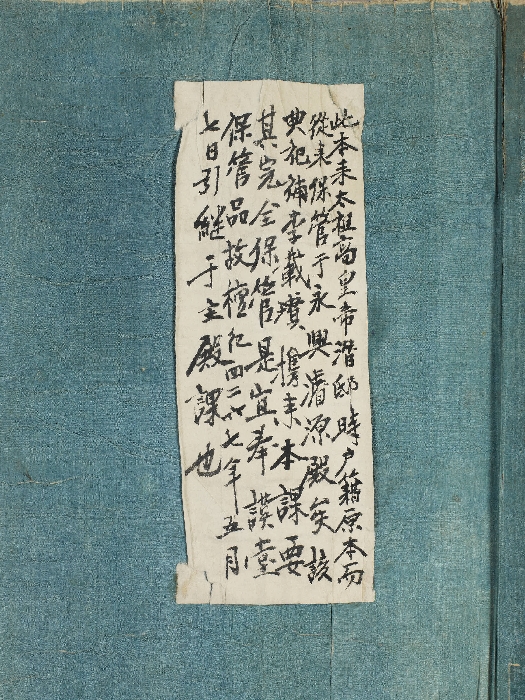 此本来太祖高皇帝潛邸時戶籍原本而
從来保管于永興濬源殿矣該
典祀補李載瓚攜来本課要
其完全保管是宜奉謨堂
保管品故檀紀四二八七年五月
七日引継于主殿課也